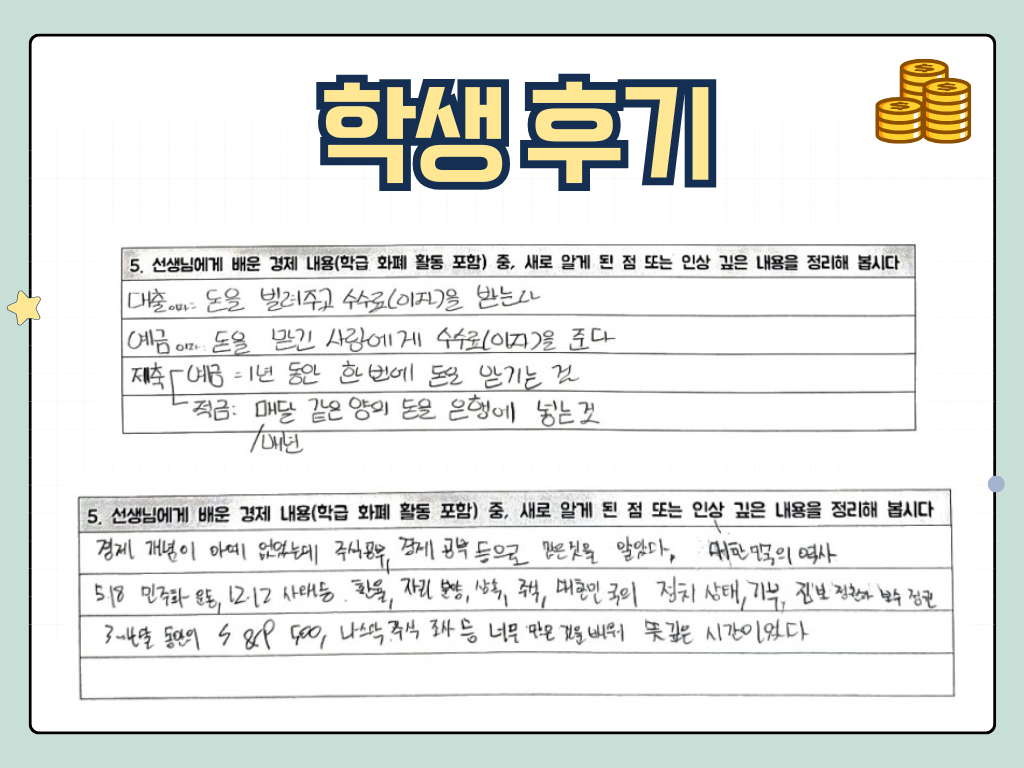 학생 후기
5. 선생님에게 배운 경제 내용(학급 화폐 활동 포함) 중, 새로 알게 된 점 또는 인상 깊은 내용을 정리해 봅시다
대출이란: 돈을 빌려주고 수수료(이자)을 받는다
예금이란: 돈을 맏긴 사람에게 수수료(이자)을 준다
예금 = 1년 동안 한번에 돈을 맏기는 것
적금: 매달 같은 양의 돈을 은행에 넣는 것
/매년
5. 선생님에게 배운 경제 내용(학급 화폐 활동 포함) 중, 새로 알게 된 점 또는 인상 깊은 내용을 정리해 봅시다
경제 개념이 아예 없었는데 주식공부, 경제 공부 등으로 많은것을 알았다, 대한민국의 역사
5.18 민주화 운동, 12.12 사태등. 환율, 자리 분양, 상속, 주식, 대한민국의 정치 상태, 기부, 진보 정권과 보수 정권
3~4달 동안의 S&P 500, 나스닥, 주식 조사 등 너무 많은 것을 배워 뜻깊은 시간이였다